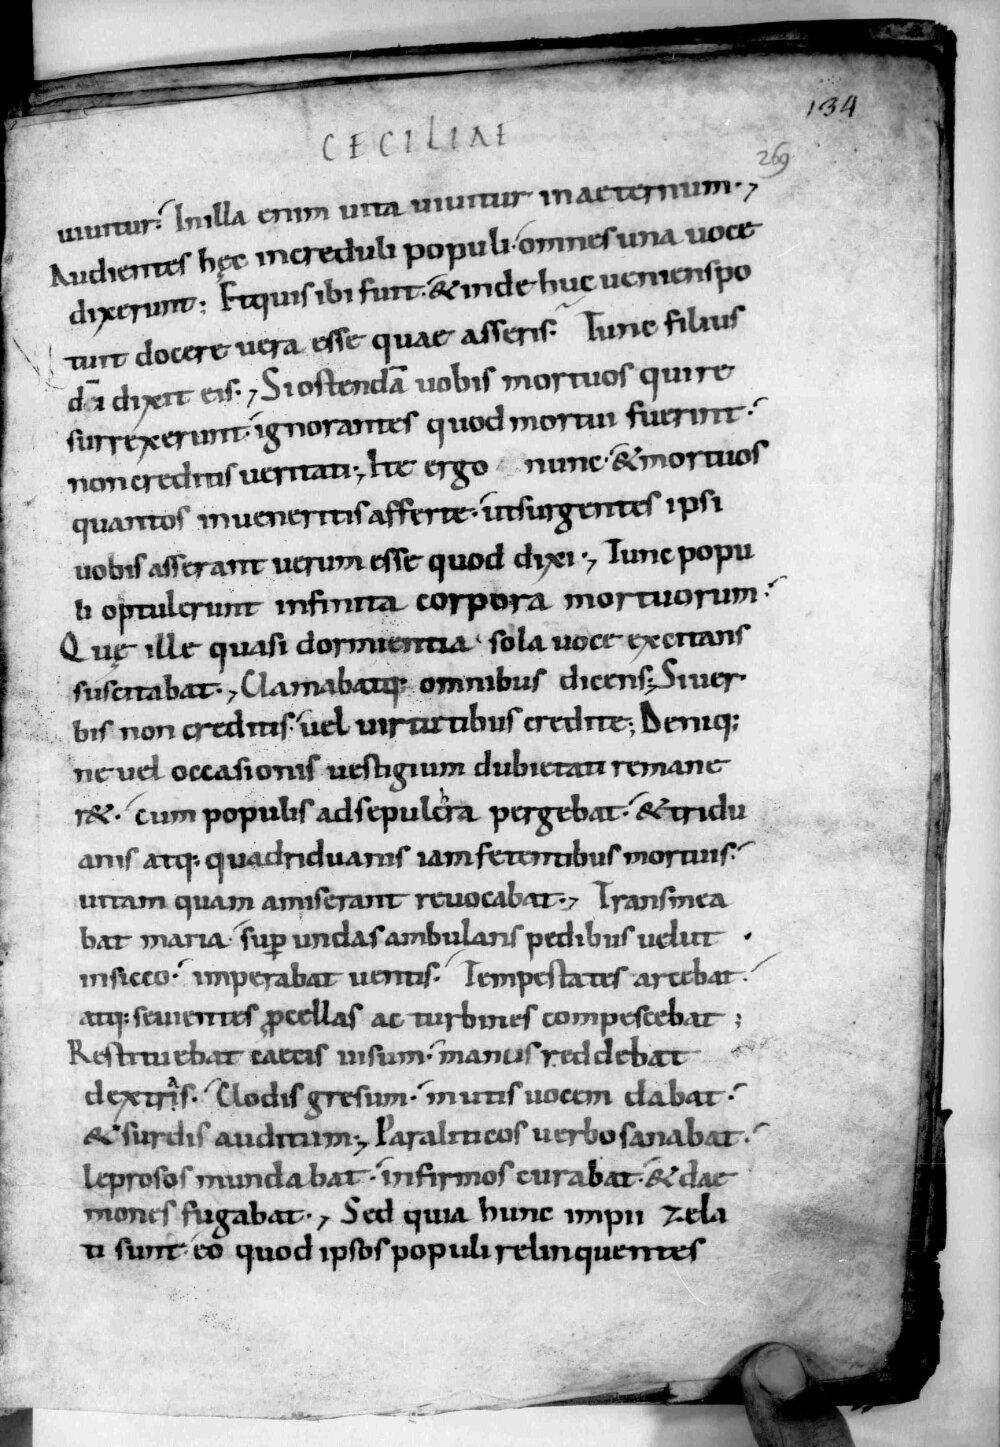 134
CECILIAE
269
uiuitur. In illa enim uita uiuitur in aeternum.,
Audientes hęc increduli populi. omnes una uoce
dixerunt; Et quis ibi fuit. & inde huc ueniens po
tuit docere uera esse quae asseris. Tunc filius
di dixit eis., Si ostendā uobis mortuos qui re
surrexerunt. ignorantes quod mortui fuerint.
non creditis ueritati., Ite ergo nunc. & mortuos
quantos inueneritis afferte. ut surgentes ipsi
uobis asserant uerum esse quod dixi., Tunc popu
li optulerunt infinita corpora mortuorum.
Quę ille quasi dormientia. sola uoce excitans
suscitabat., Clamabatq; omnibus dicens; Si uer
bis non creditis. uel uirtutibus credite; Deniq;
ne uel occasionis uestigium dubietati remane
r&. cum populis ad sepulcra pergebat. & tridu
anis atq; quadriduanis iam fetentibus mortuis.
uitam quam amiserant reuocabat., Transmea
bat maria. sup̄ undas ambulans pedibus uelut
in sicco. imperabat uentis. Tempestates arcebat.
atq; seuientes ꝓcellas ac turbines compescebat;
Restituebat caecis uisum. mancis reddebat
dextras. Clodis gresum. mutis uocem dabat.
& surdis auditum., Paraliticos uerbo sanabat.
leprosos mundabat. infirmos curabat. & dae
mones fugabat., Sed quia hunc impii zela
ti sunt. eo quod ipsos populi relinquentes